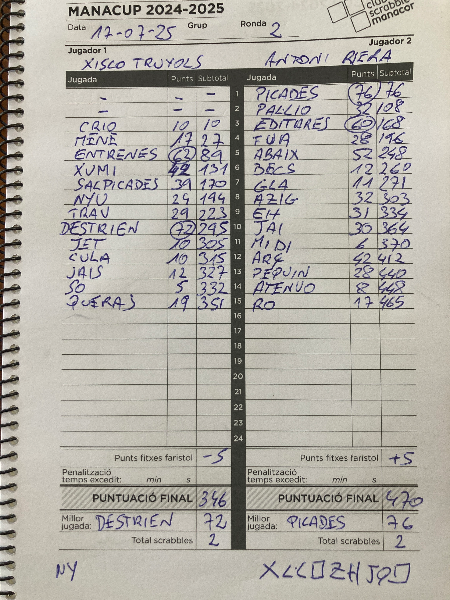 MANACUP 2024-2025
club scrabble manacor
Data 17-07-25 Grup Ronda 2
Jugador 1 Jugador 2
XISCO TRUYOLS ANTONI RIERA
Jugada Punts Subtotal Jugada Punts Subtotal
- - - 1 PICADES 76 76
- - - 2 PALLIO 32 108
CRIO 10 10 3 EDITARES 60 168
MINE 17 27 4 FUA 28 196
ENTRENES 62 89 5 ABAIX 52 248
XUMI 42 131 6 BECS 12 260
SALPICADES 39 170 7 GLA 11 271
NYU 24 194 8 AZIG 32 303
TRAU 29 223 9 EH 31 334
DESTRIEN 72 295 10 JAI 30 364
JET 10 305 11 MIDI 6 370
CULA 10 315 12 ARÇ 42 412
JAIS 12 327 13 PEQUIN 28 440
SO 5 332 14 ATENUO 8 448
QUERAS 19 351 15 RO 17 465
16
17
18
19
20
21
22
23
24
Punts fitxes faristol -5 Punts fitxes faristol +5
Penalització temps excedit: min s Penalització temps excedit: min s
PUNTUACIÓ FINAL 346 PUNTUACIÓ FINAL 470
Millor jugada: DESTRIEN 72 Millor jugada: PICADES 76
Total scrabbles 2 Total scrabbles 2
NY